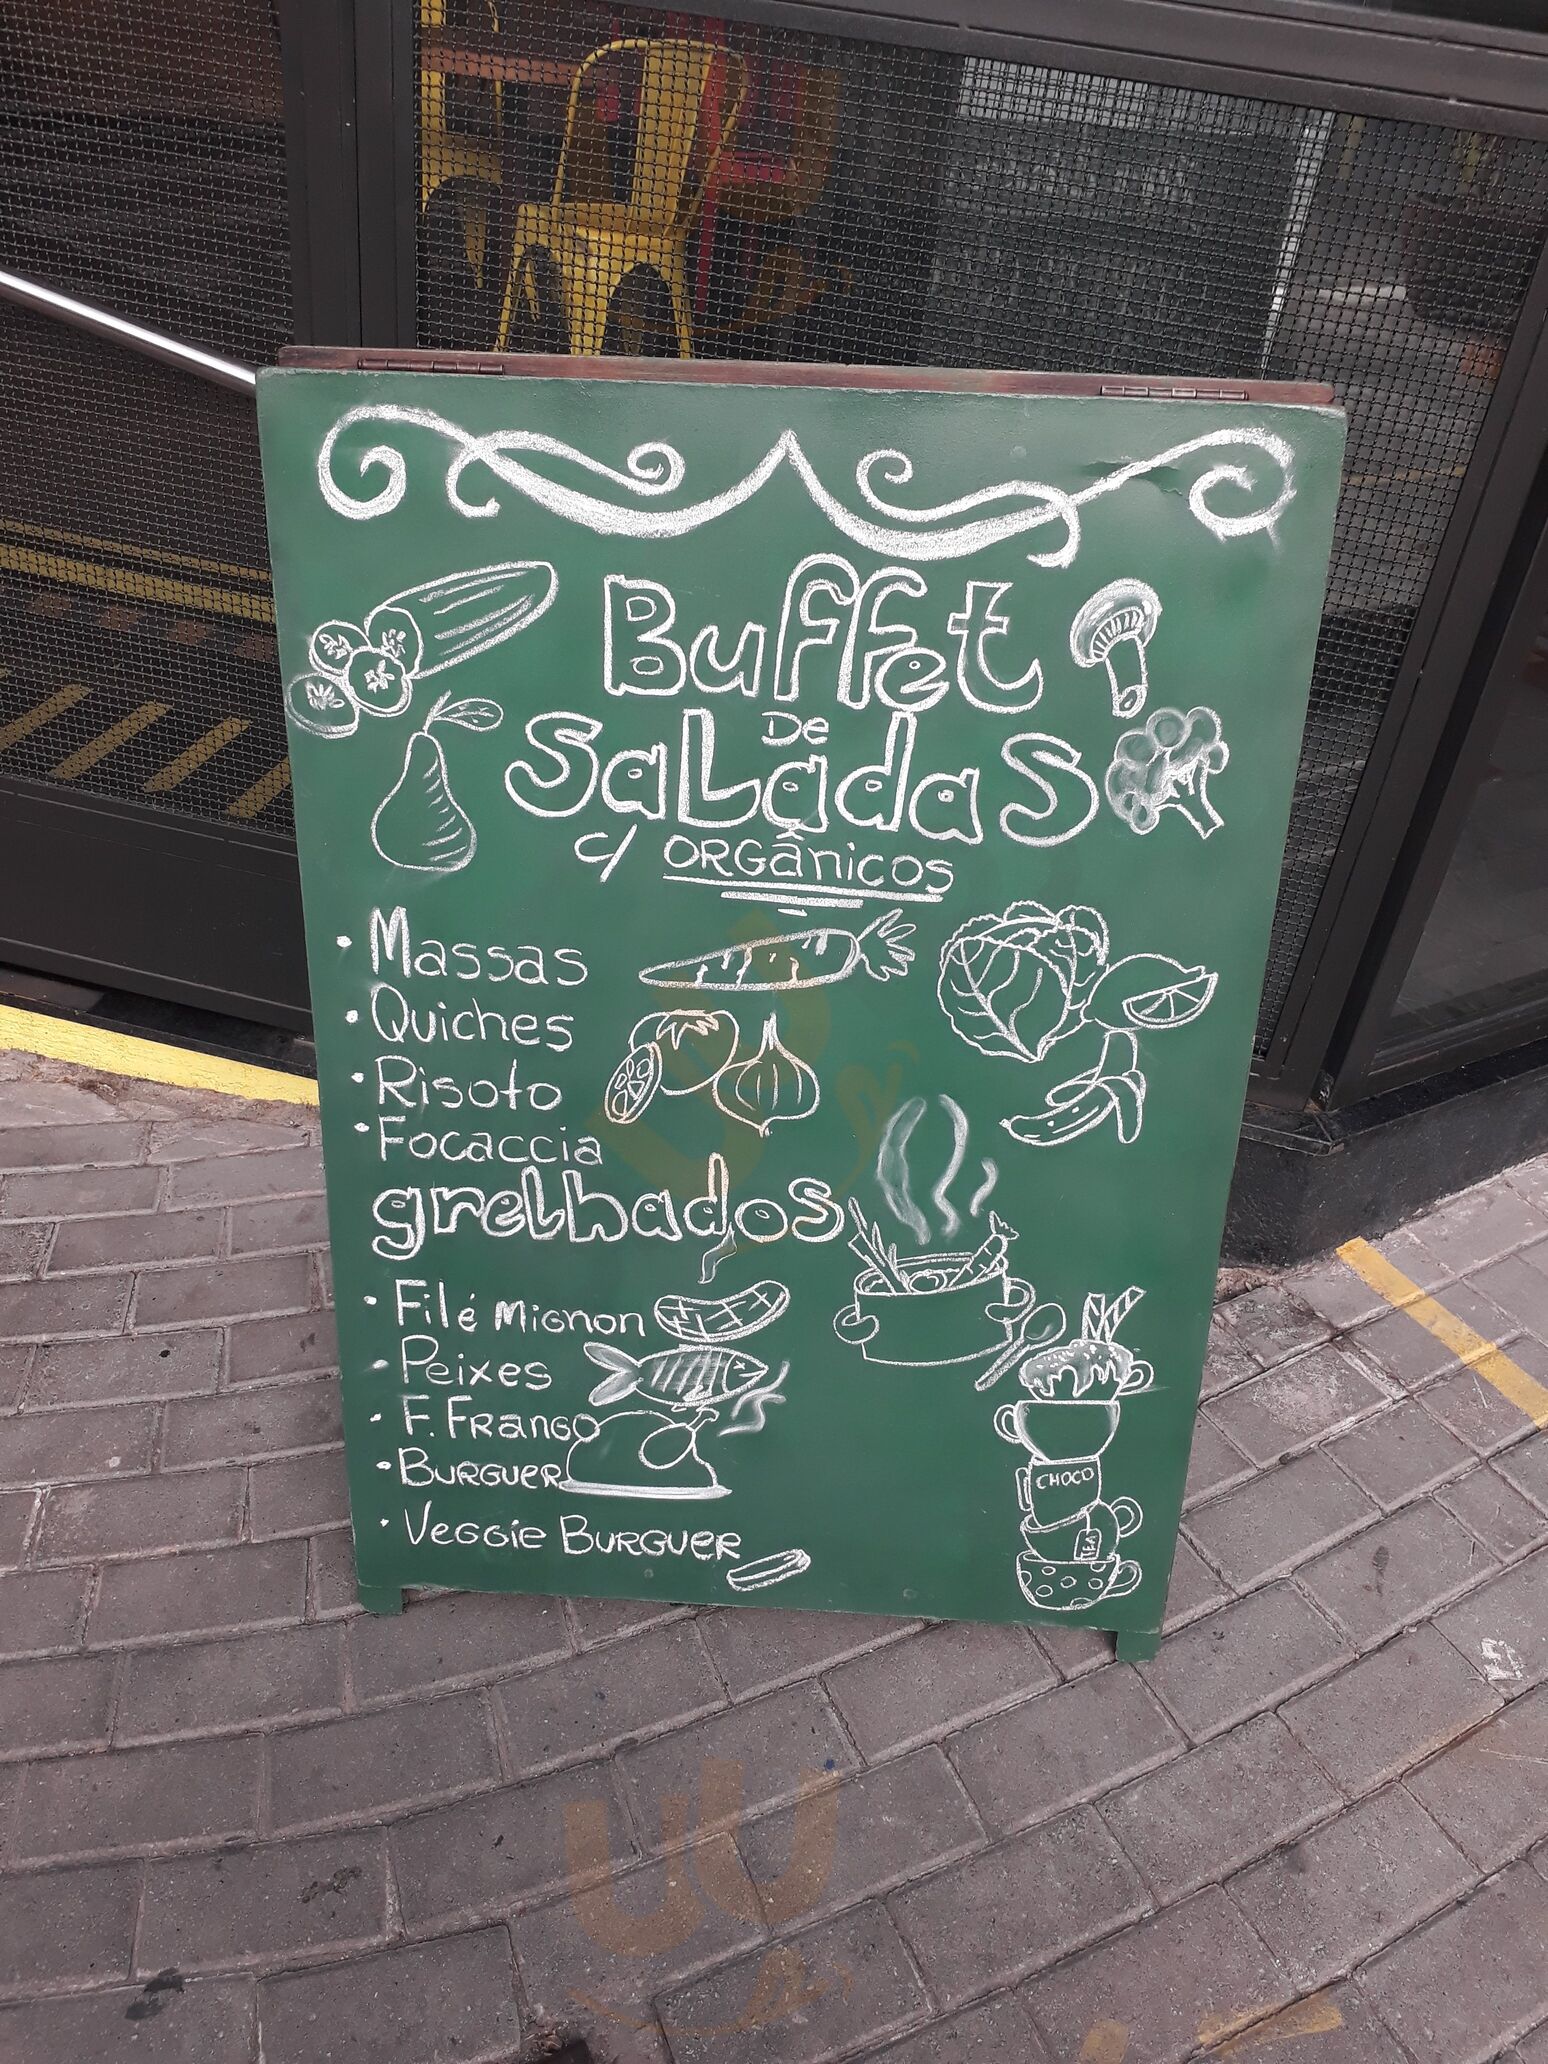 Buffet
De
Saladas
c/ orgânicos
• Massas
• Quiches
• Risoto
• Focaccia
grelhados
• Filé Mignon
• Peixes
• F. Frango
• Burguer
• Veggie Burguer
CHOCO
TEA